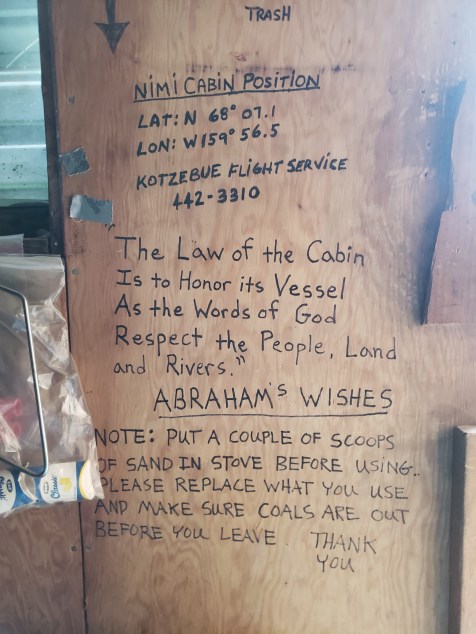 TRASH
NIMI CABIN POSITION
LAT: N 68° 07.1
LON: W159° 56.5
KOTZEBUE FLIGHT SERVICE
442-3310
"The Law of the Cabin
Is to Honor its Vessel
As the Words of God
Respect the People, Land
and Rivers."
ABRAHAM'S WISHES
NOTE: PUT A COUPLE OF SCOOPS
OF SAND IN STOVE BEFORE USING..
PLEASE REPLACE WHAT YOU USE
AND MAKE SURE COALS ARE OUT
BEFORE YOU LEAVE. THANK
YOU